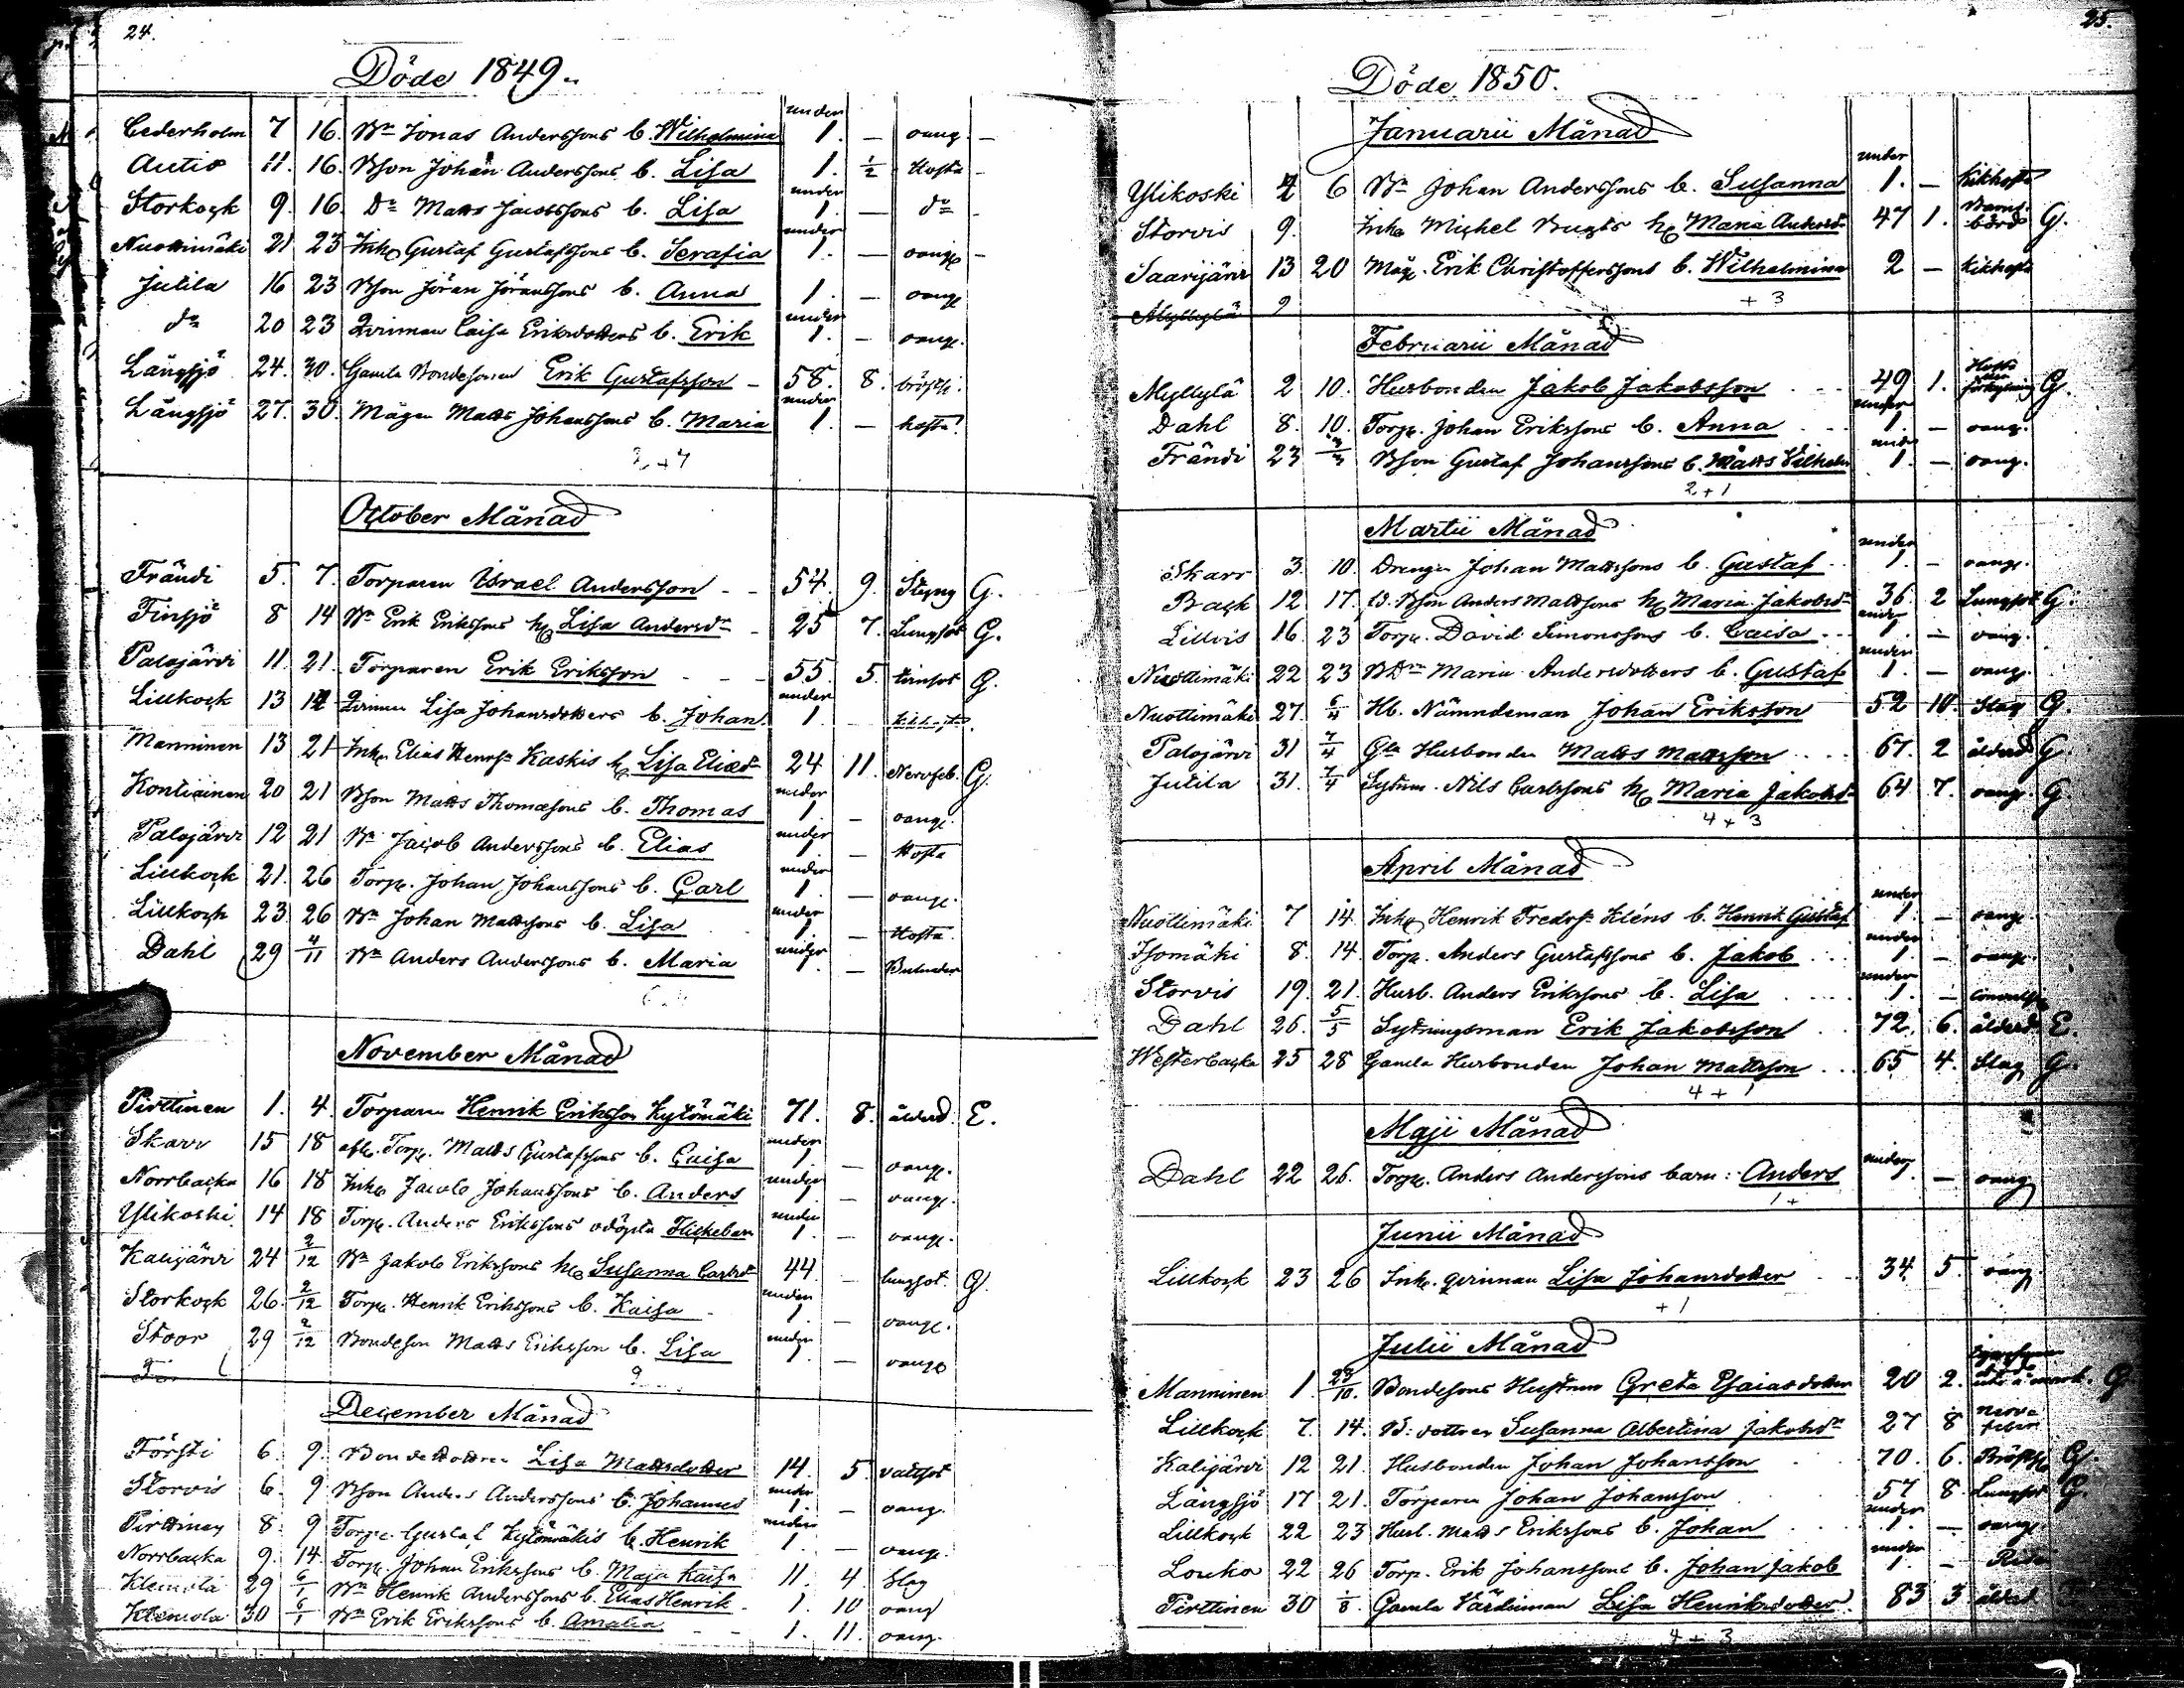 24.
Döde 1849.
Cederholm 7 16. Bn Jonas Anderssons b. Wilhelmina under 1. — oang. —
Autio 11. 16. Bson Johan Anderssons b. Lisa 1. 1/2 Hosta —
Storkock 9. 16. Do Matts Jacobssons b. Lisa under 1. — do —
Nuottimäki 21 23 Inh. Gustaf Gustafssons b. Serafia under 1. — oang. —
Jutila 16 23 Bson Jöran Jöranssons b. Anna 1. — oang.
do 20 23 Qvinnan Caisa Eriksdotters b. Erik under 1. — oang.
Långsjö 24. 30. Gamla Bondesonen Erik Gustafsson — 58. 8. bröstsj.
Långsjö 27. 30. Mågen Matts Johanssons b. Maria under 1. — hosta.
October Månad
Frändi 5. 7. Torparen Israel Andersson — — 54. 9. Styng G.
Finsjö 8 14 Bn Erik Erikssons h. Lisa Andersdr — 25 7. Lungsot G.
Palojärvi 11. 21. Torparen Erik Eriksson — — 55. 5. tärnsot G.
Lillkock 13 14 Qvinnan Lisa Johansdotters b. Johan under 1. —
Manninen 13 21 Inh. Elias Henrs. Kaskis h. Lisa Eliasdr 24 11. Nervfeb. G.
Kontiainen 20 21 Bson Matts Thomasons b. Thomas under 1 — oang.
Palojärvi 12 21 Bn Jacob Anderssons b. Elias under 1 — Hosta
Lillkock 21. 26 Torp. Johan Johanssons b. Carl under 1. — oang.
Lillkock 23 26 Bn Johan Mattssons b. Lisa under 1. — Hosta.
Dahl 29 4/11 Bn Anders Anderssons b. Maria under 1. — Bulnader
November Månad
Pirttinen 1. 4. Torparen Henrik Eriksson Kytömäki 71. 8. ålderd. E.
Skarr 15 18 afl. Torp. Matts Gustafssons b. Caisa under 1 — oang.
Norrbacka 16 18 Inh. Jacob Johanssons b. Anders under 1 — oang.
Ylikoski 14 18 Torp. Anders Erikssons odöpta Flickebarn under 1. — oang.
Kalijärvi 24 2/12 Bn Jakob Erikssons h. Susanna Carlsdr 44. — lungsot. G.
Storkock 26. 2/12 Torp. Henrik Erikssons b. Kaisa under 1 — oang.
Stoor 29 2/12 Bondeson Matts Eriksson b. Lisa under 1. — oang.
9
December Månad
Försti 6. 9. Bondedottren Lisa Mattsdotter 14. 5. vattsot
Storvis 6. 9. Bson Anders Anderssons b. Johannes under 1. — oang.
Pirttinen 8. 9 Torp. Gustaf Kytömäkis b. Henrik under 1. — oang.
Norrbacka 9. 14. Torp. Johan Erikssons b. Maja Kaisa 11. 4. Slag
Klemola 29 6/1 Bn Henrik Anderssons b. Elias Henrik 1. 10 oang
Klemola 30 6/1 Bn Erik Erikssons b. Amalia 1. 11. oang.
25.
Döde 1850.
Januarii Månad
Ylikoski 4 6 Bn Johan Anderssons b. Susanna under 1. — Kikhosta
Storvis 9. Inh. Michel Bugts h. Maria Andersdr 47 1. Barnsbörd G.
Saarijärvi 13 20 Måg. Erik Christofferssons b. Wilhelmina 2 — Kikhosta
Myllylä 9 + 3
Februarii Månad
Myllylä 2 10. Husbonden Jakob Jakobsson 49 1. Hosta G.
Dahl 8. 10. Torp. Johan Erikssons b. Anna under 1. — oang.
Frändi 23 3/3 Bson Gustaf Johanssons b. Matts Wilhelm under 1. — oang.
2 + 1
Martii Månad
Skarr 3. 10. Drengen Johan Mattssons b. Gustaf under 1. — oang.
Back 12 17. Bson Anders Mattssons h. Maria Jakobsdr 36. 2 Lungsot G.
Lillvis 16. 23 Torp. David Simonssons b. Caisa under 1. — oang.
Nuottimäki 22 23 BDr Maria Andersdotters b. Gustaf under 1. — oang.
Nuottimäki 27. 6/4 Hb. Nämndeman Johan Eriksson 52 10. Slag G.
Palojärvi 31 7/4 Gla Husbonden Matts Mattsson 67. 2 ålderd G.
Jutila 31. 7/4 Sytnm. Nils Carlssons h. Maria Jakobsdr 64 7. oang. G
4 + 3
April Månad
Nuottimäki 7 14. Inh. Henrik Fredrs. Kléns b. Henrik Gustaf under 1. — oang.
Isomäki 8. 14. Torp. Anders Gustafssons b. Jakob under 1. — oang.
Storvis 19. 21. Husb. Anders Erikssons b. Lisa under 1. — Convulsj.
Dahl 26. 5/5 Sytningsman Erik Jakobsson 72. 6. ålderd. E.
Westerbacka 25 28 Gamla Husbonden Johan Mattsson 65 4. Slag G.
4 + 1
Maji Månad
Dahl 22 26. Torp. Anders Anderssons barn: Anders under 1. — oang
1 +
Junii Månad
Lillkock 23 26 Inh. qvinnan Lisa Johansdotter 34. 5. oang.
+ 1
Julii Månad
Manninen 1. 23/10. Bondesons Hustrun Greta Esaiasdotter 20 2. G
Lillkock 7. 14. B: dottren Susanna Albertina Jakobsdr 27 8 Nervfeber
Kalijärvi 12 21. Husbonden Johan Johansson 70. 6. Bröstsj. G.
Långsjö 17 21. Torparen Johan Johansson 57 8. Lungsot G.
Lillkock 22 23 Husb. Matts Erikssons b. Johan under 1. — oang
Louko 22 26 Torp. Erik Johanssons b. Johan Jakob under 1. —
Pirttinen 30 1/8. Gamla Värdinnan Lisa Henriksdotter 83 3 ålderd
4 + 3